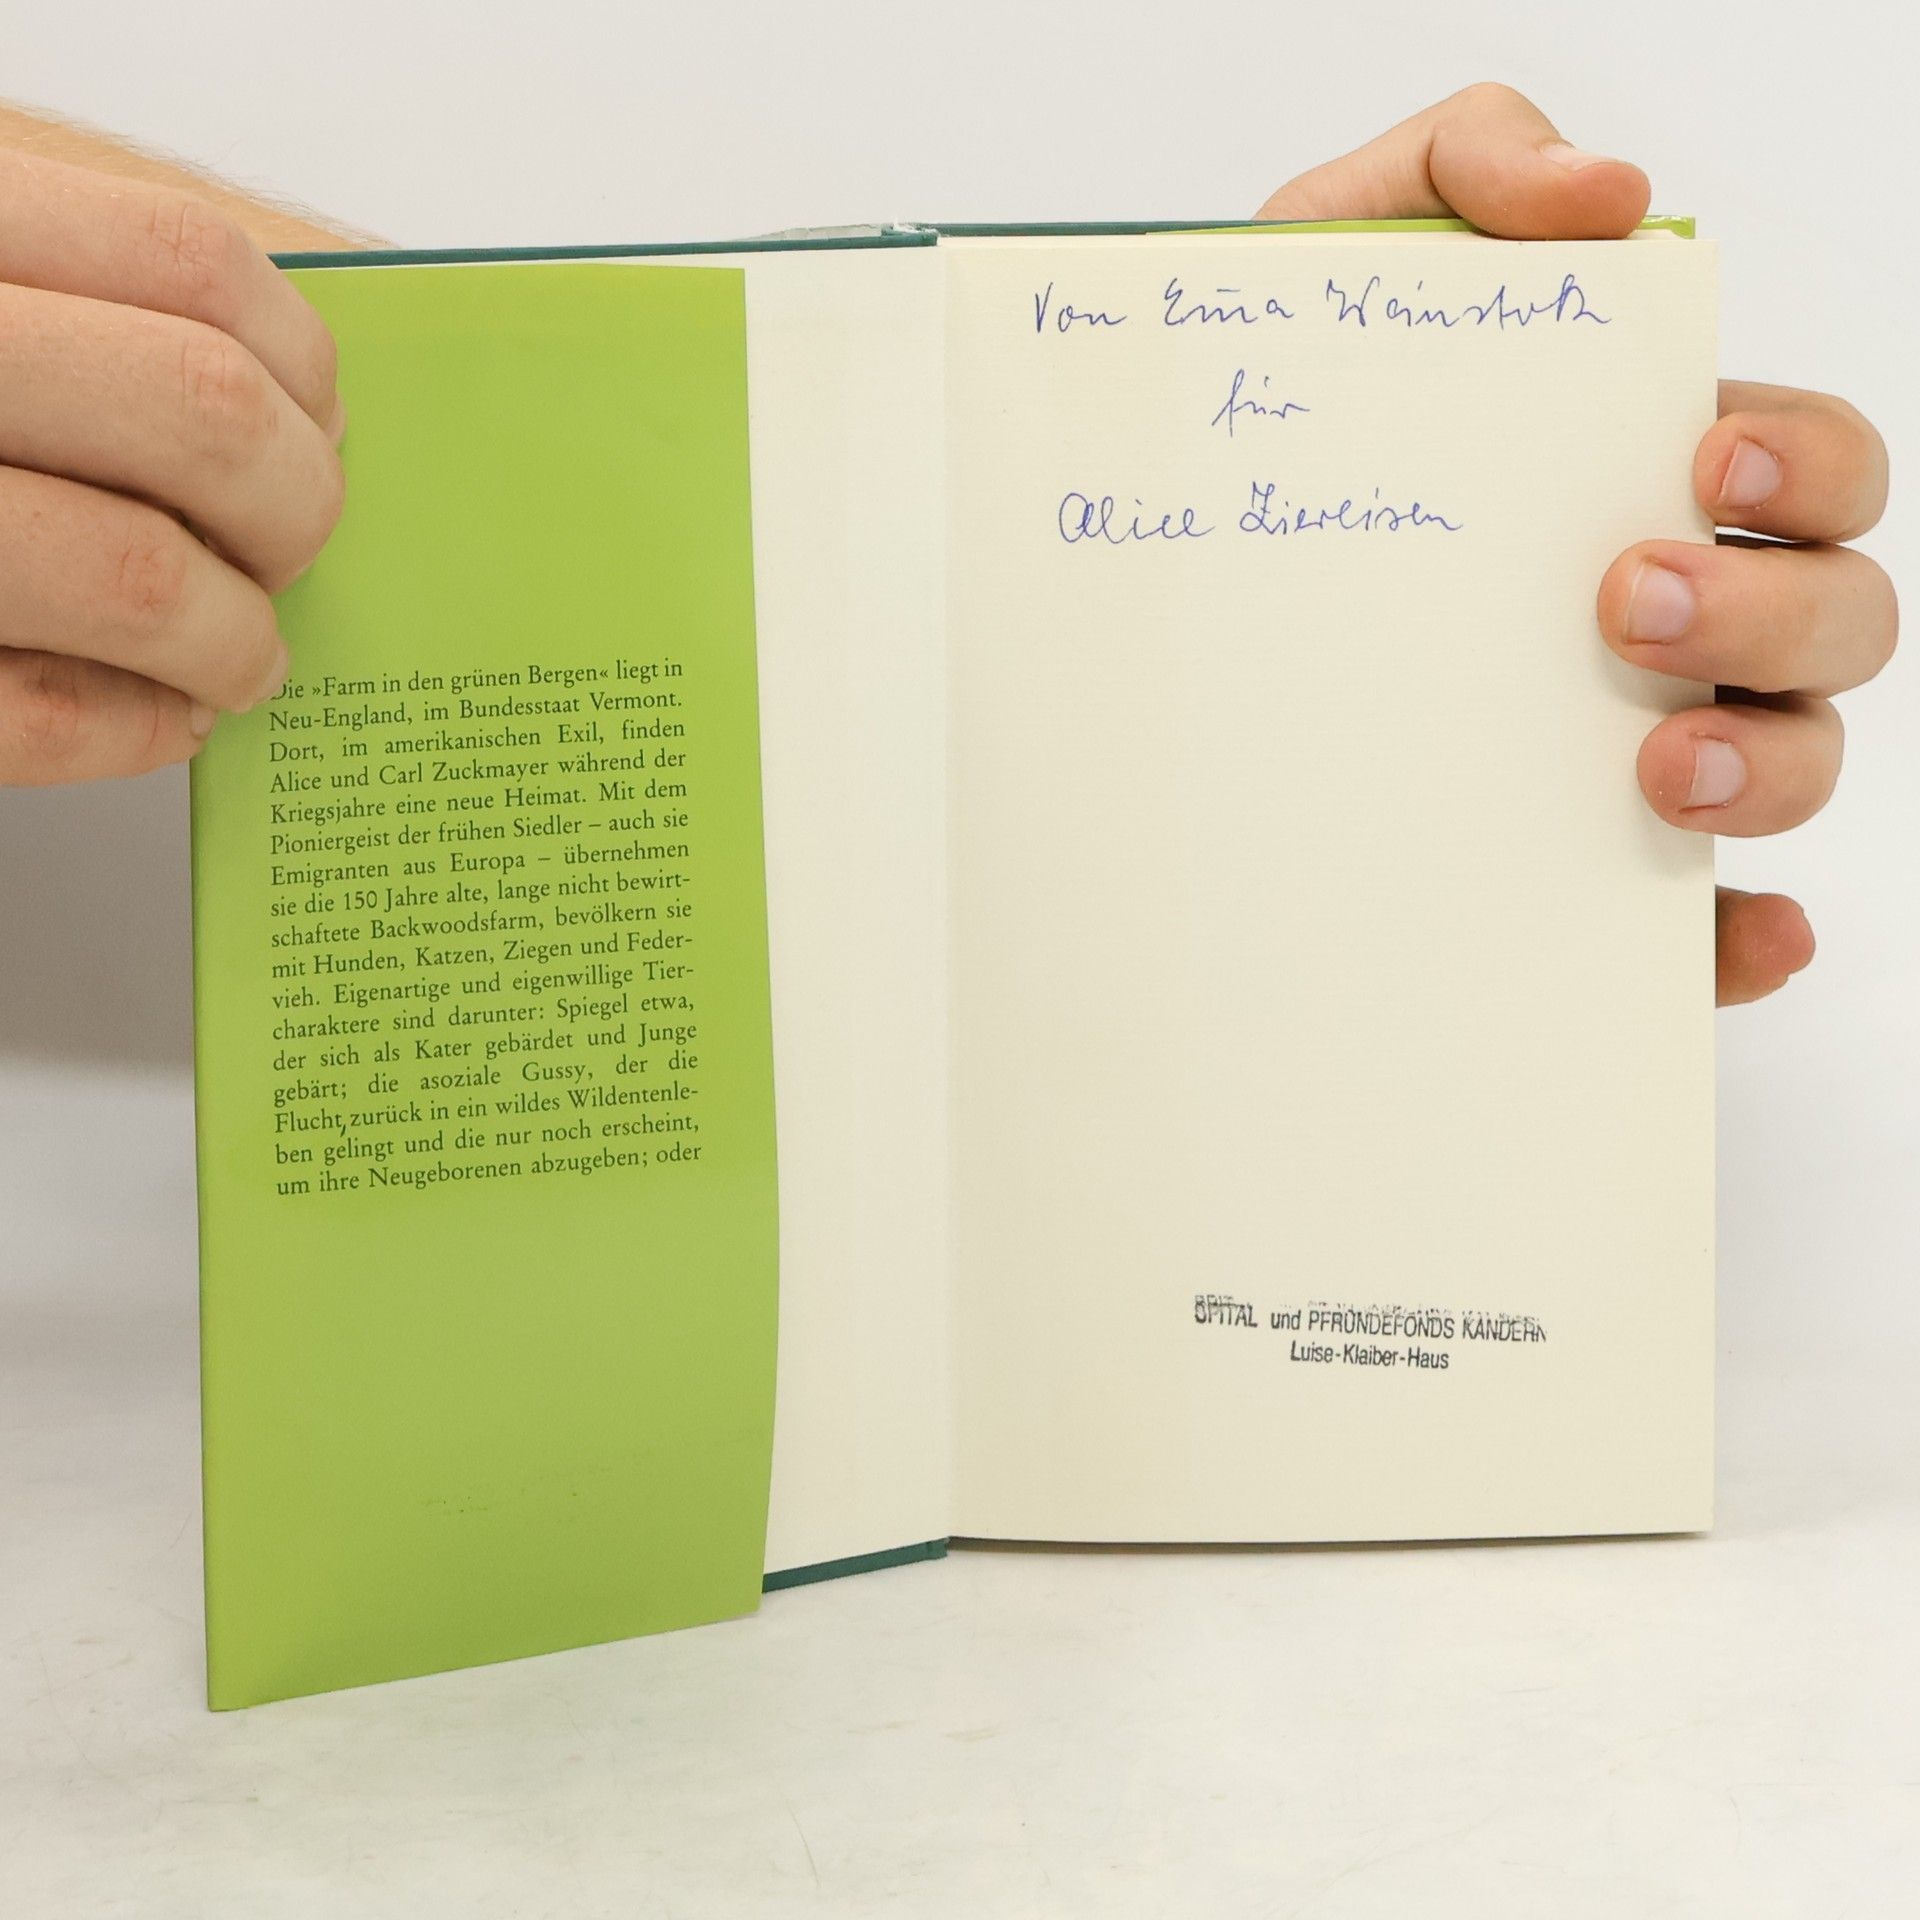 Die »Farm in den grünen Bergen« liegt in
Neu-England, im Bundesstaat Vermont.
Dort, im amerikanischen Exil, finden
Alice und Carl Zuckmayer während der
Kriegsjahre eine neue Heimat. Mit dem
Pioniergeist der frühen Siedler – auch sie
Emigranten aus Europa – übernehmen
sie die 150 Jahre alte, lange nicht bewirt-
schaftete Backwoodsfarm, bevölkern sie
mit Hunden, Katzen, Ziegen und Feder-
vieh. Eigenartige und eigenwillige Tier-
charaktere sind darunter: Spiegel etwa,
der sich als Kater gebärdet und Junge
gebärt; die asoziale Gussy, der die
Flucht zurück in ein wildes Wildentenle-
ben gelingt und die nur noch erscheint,
um ihre Neugeborenen abzugeben; oder
Von Em̄a
für
Alice Ziereisen
SPITAL und PFRÜNDEFONDS KANDERN
Luise-Klaiber-Haus